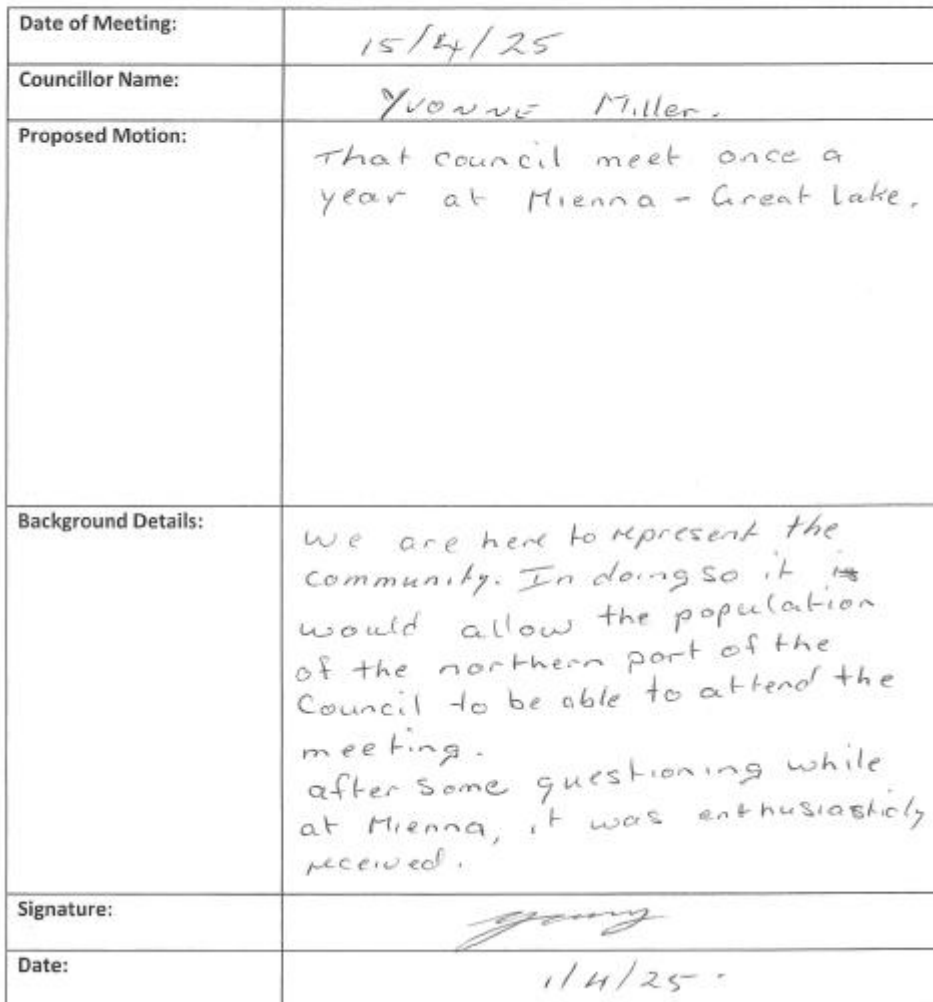 Date of Meeting:
15/4/25
Councillor Name:
Yvonne Miller.
Proposed Motion:
That council meet once a
year at Mienna - Great Lake.
Background Details:
We are here to represent the
community. In doing so it is
would allow the population
of the northern part of the
Council to be able to attend the
meeting.
after some questioning while
at Mienna, it was enthusiasticly
received.
Signature:
Date:
1/4/25.